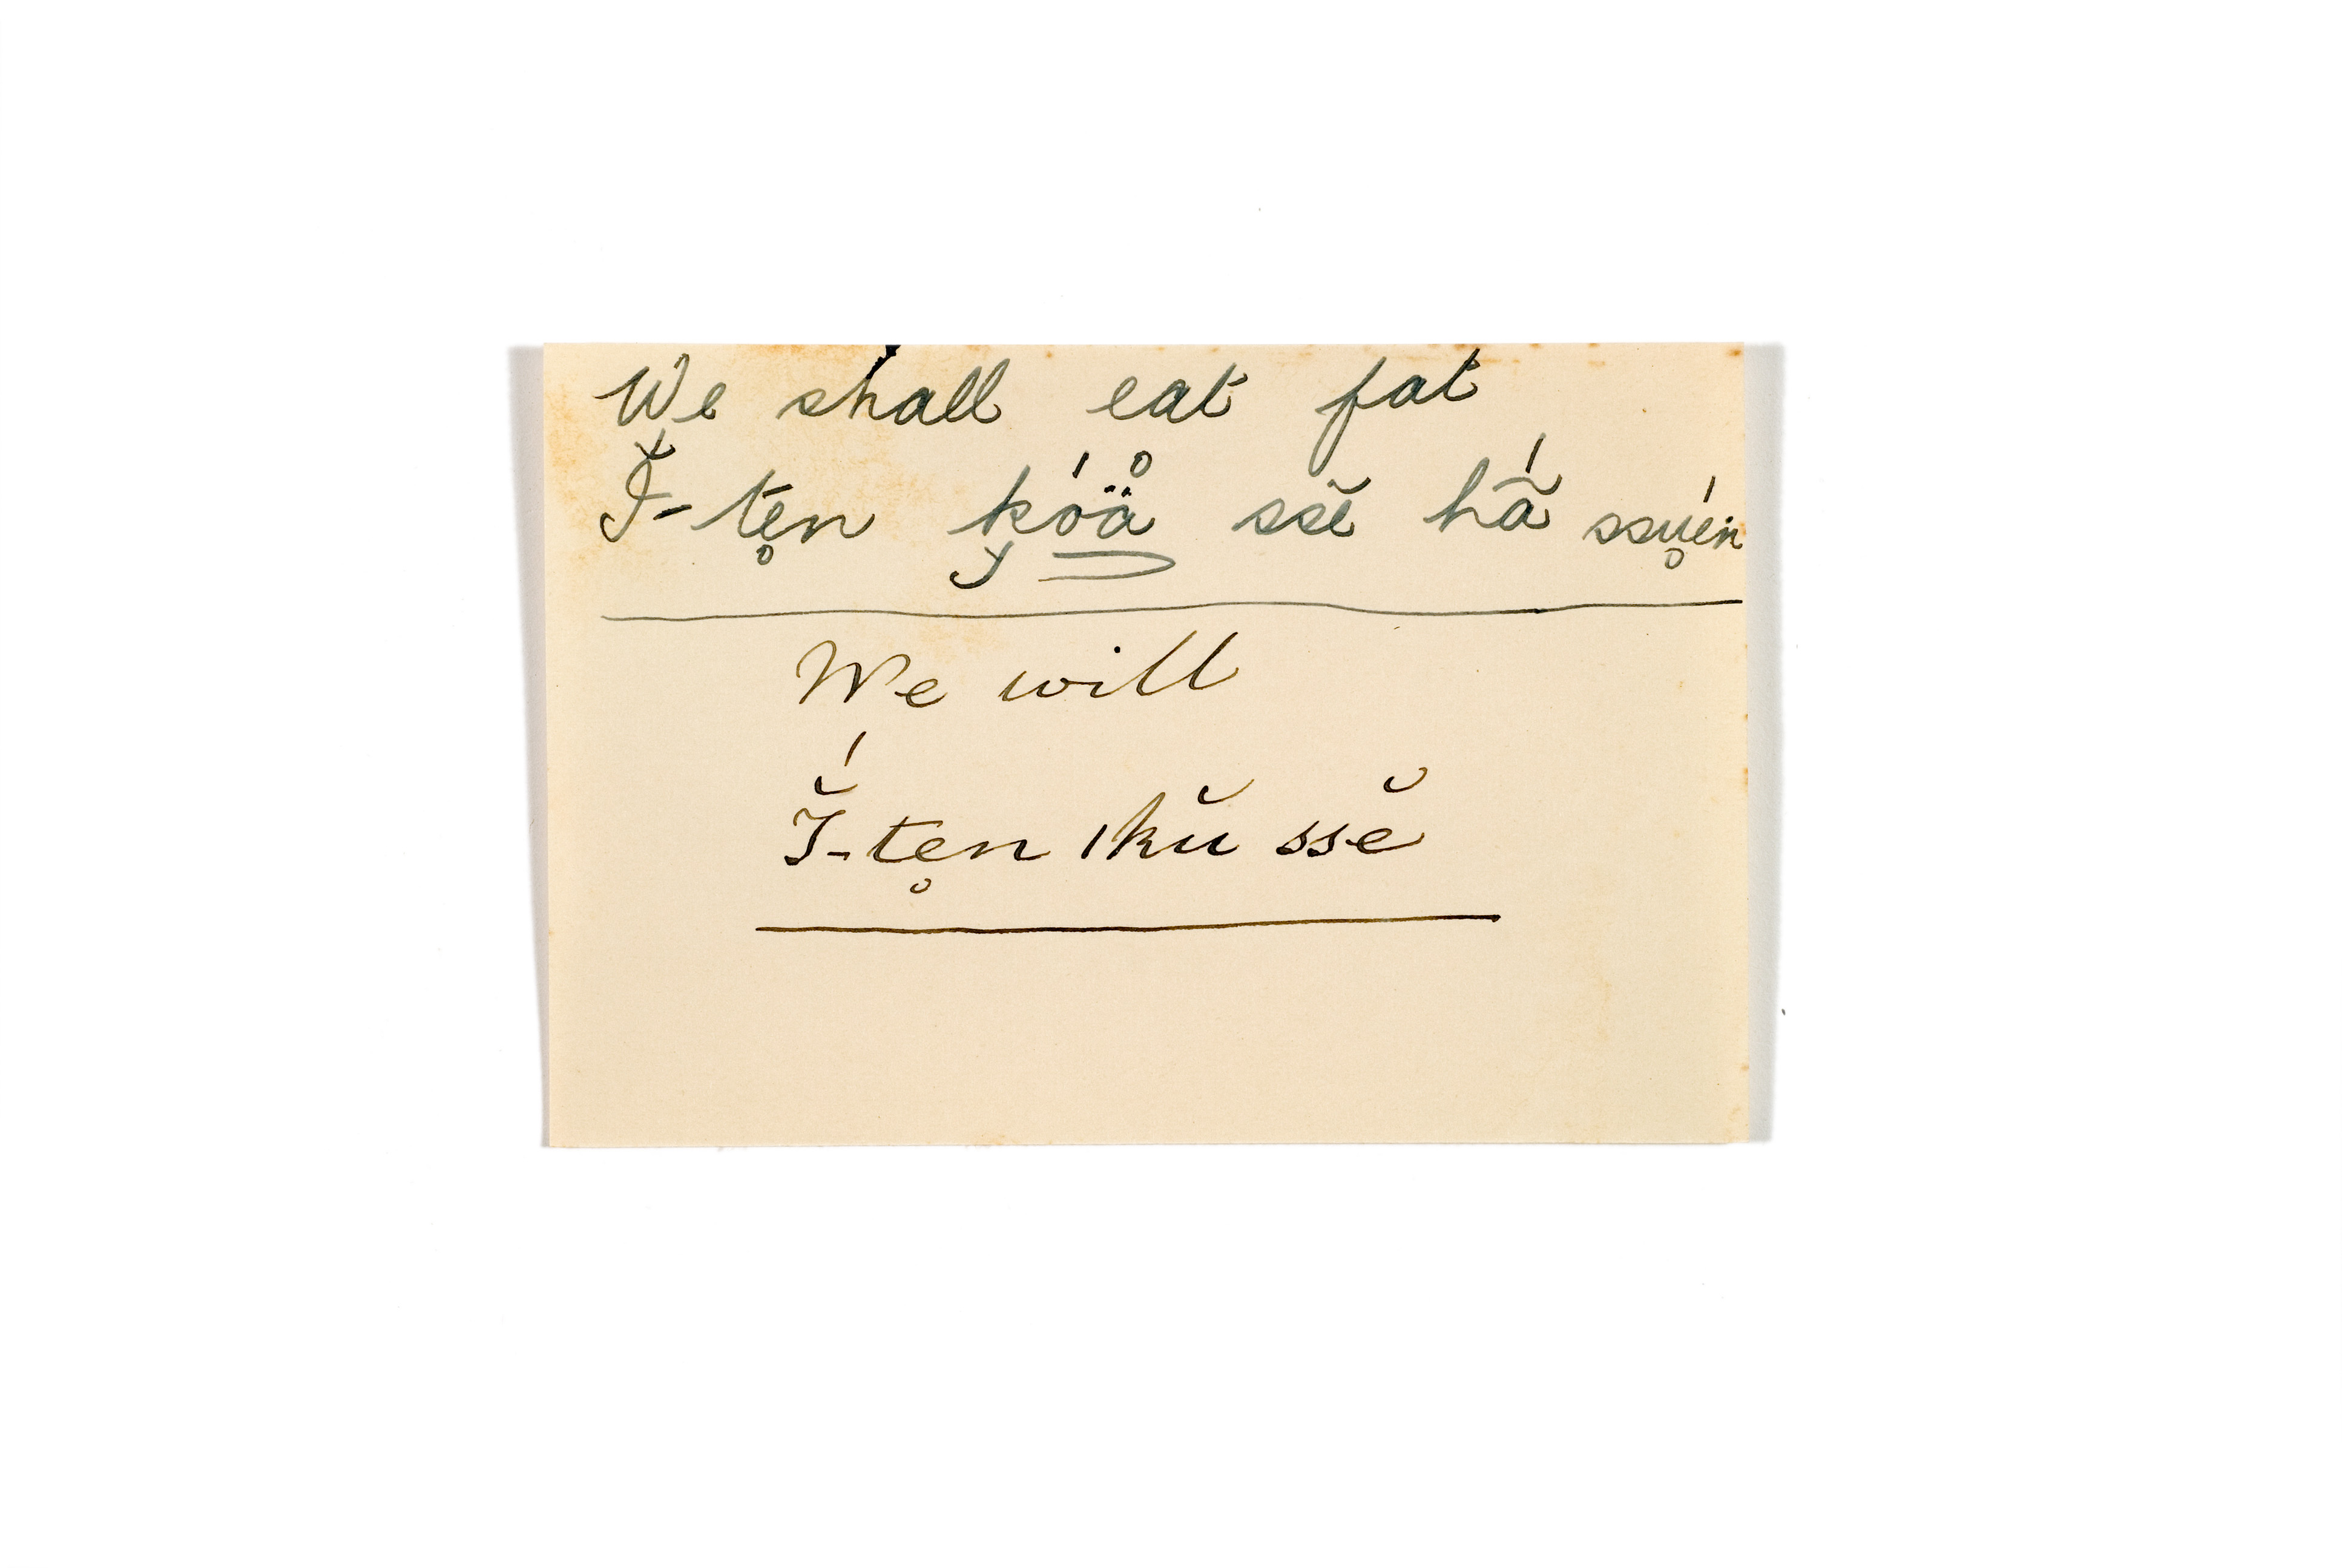 We shall eat fat
Ĭ-te̥n k̯óä̊ ssĕ hā́ ssu̥én
We will
Ĭ́-te̥n ıkŭ ssĕ